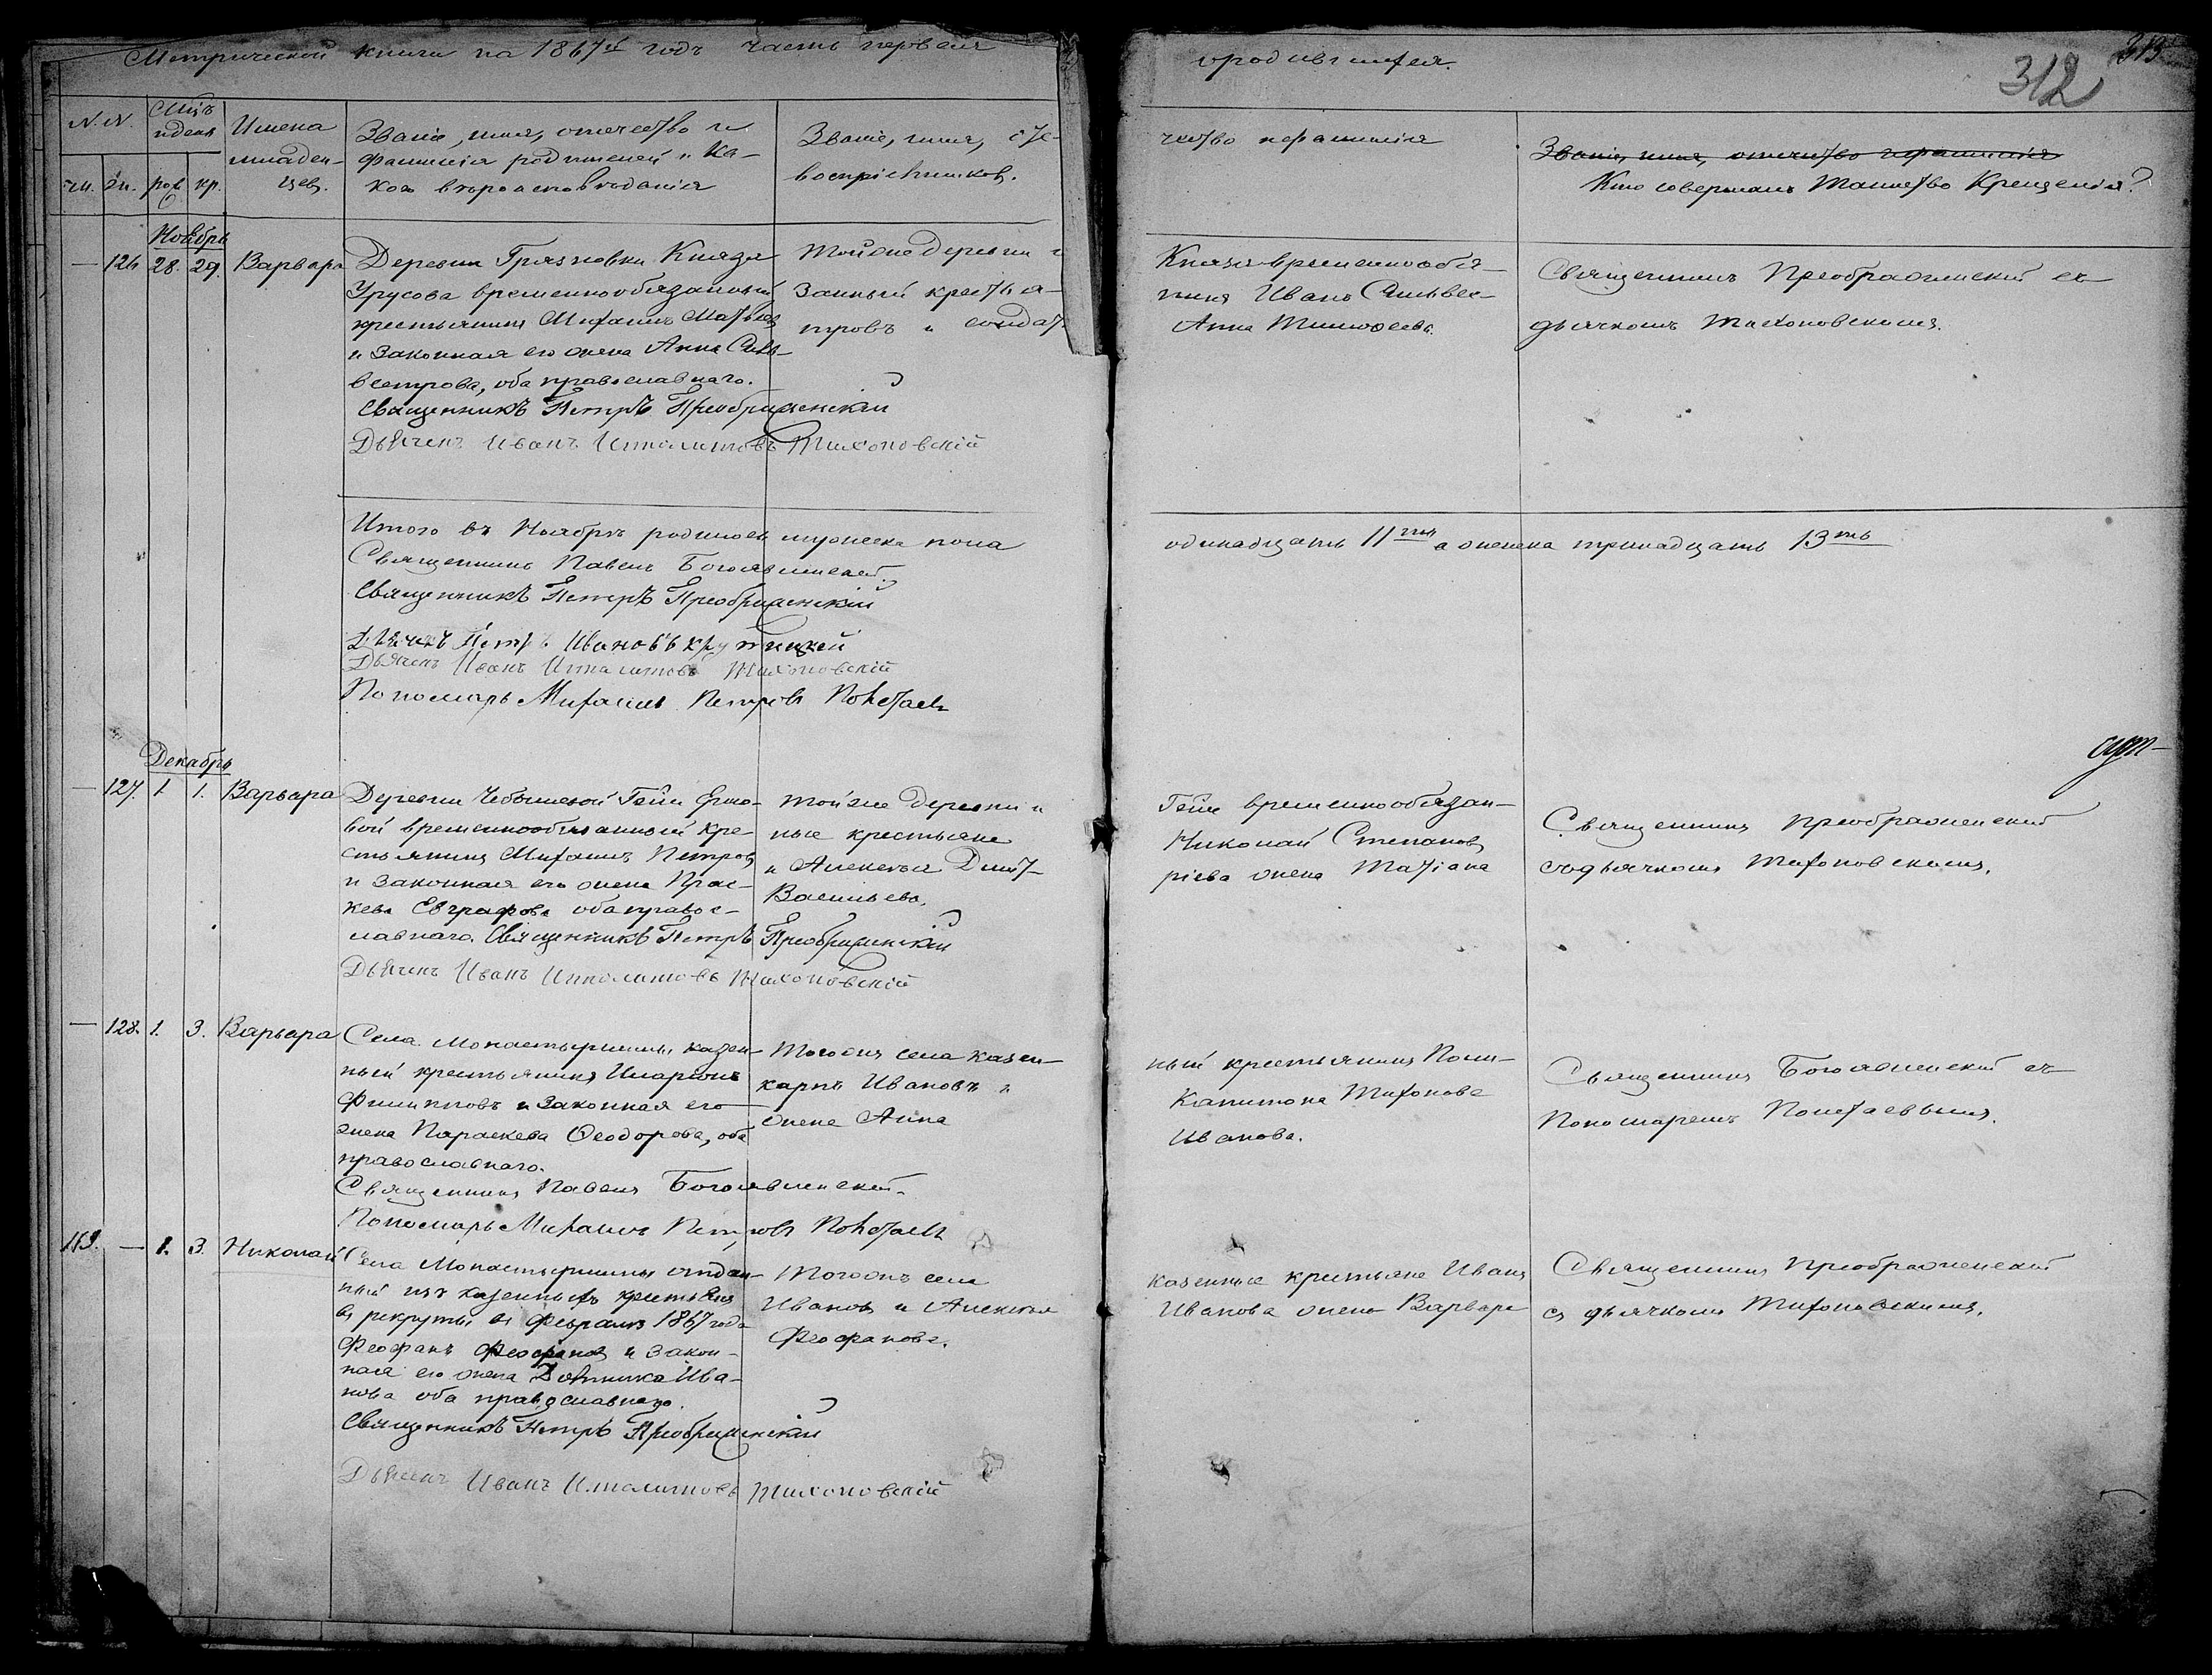 Метрической книги на 1867й годъ часть первая
о родившихся.
312
313
N. N.
Мцъ и день
Имена младен-цев.
Званіе, имя, отчество и
фамилія родителей и ка-
кого вѣроисповѣданія
Званіе, имя, оте-
воспріемниковъ.
чество и фамилія
Званіе, имя, отчество и фамилія
Кто совершалъ Таинство Крещенія?
м. ж. род. кр.
Ноябрь
— 126 28. 29. Варвара
Деревни Грязновки Князя
Урусова временнообязанный
крестьянинъ Михаилъ Матвѣев
и законная его жена Анна Силь-
вестрова, оба православнаго.
Священникъ Петръ Преображенскій
Дьячекъ Иванъ Ипполитовъ Тихоновскій
Той же деревни
Князя временнообя-
занный крестья-
нинъ Иванъ Сильвес-
тровъ и солдат.
Анна Тимофеева.
Священникъ Преображенскій съ
дьячкомъ Тихоновскимъ.
Итого въ Ноябрѣ родилось мужеска пола
одинадцать 11ть а женска тринадцать 13ть
Священникъ Павелъ Богоявленскій
Священникъ Петръ Преображенскій
Дьячекъ Петръ Ивановъ Крутицкій
Дьячекъ Иванъ Ипполитовъ Тихоновскій
Пономарь Михаилъ Петровъ Полетаевъ
Декабрь
— 127. 1. 1. Варвара
Деревни Чебышевой Гжи
вой временнообязанный кре-
стьянинъ Михаилъ Петров
и законная его жена Прас-
кева Евграфова оба правос-
лавнаго. Священникъ Петръ Преображенскій
Дьячекъ Иванъ Ипполитовъ Тихоновскій
Той же деревни и
Гжи временнообязан-
ные крестьяне
Николай Степанов
и Алексѣя Дмит-
ріева жена Татіана
Васильева.
Священникъ Преображенскій
съ дьячкомъ Тихоновскимъ.
— 128. 1. 3. Варвара
Села Монастырщины казен-
ный крестьянинъ Иларіонъ
Филипповъ и законная его
жена Параскева Ѳеодорова, оба
православнаго.
Священникъ Павелъ Богоявленскій.
Пономарь Михаилъ Петровъ Полетаевъ
Тогожъ села казен-
ный крестьянинъ Поли-
карпъ Ивановъ и
Капитона Тихонова
жена Анна
Иванова.
Священникъ Богоявленскій съ
Пономаремъ Полетаевымъ.
119. — 1. 3. Николай
Села Монастырщины отдан-
ный изъ казенныхъ крестьянъ
въ рекруты въ Февралѣ 1867 года
Феофанъ Феофановъ и закон-
ная его жена Домника Ива-
нова оба православнаго.
Священникъ Петръ Преображенскій
Дьячекъ Иванъ Ипполитовъ Тихоновскій
Тогожъ села
казенные крестьяне Иванъ
Иванов и Алексѣя
Иванова жена Варвара
Феофанова.
Священникъ Преображенскій
съ дьячкомъ Тихоновскимъ.